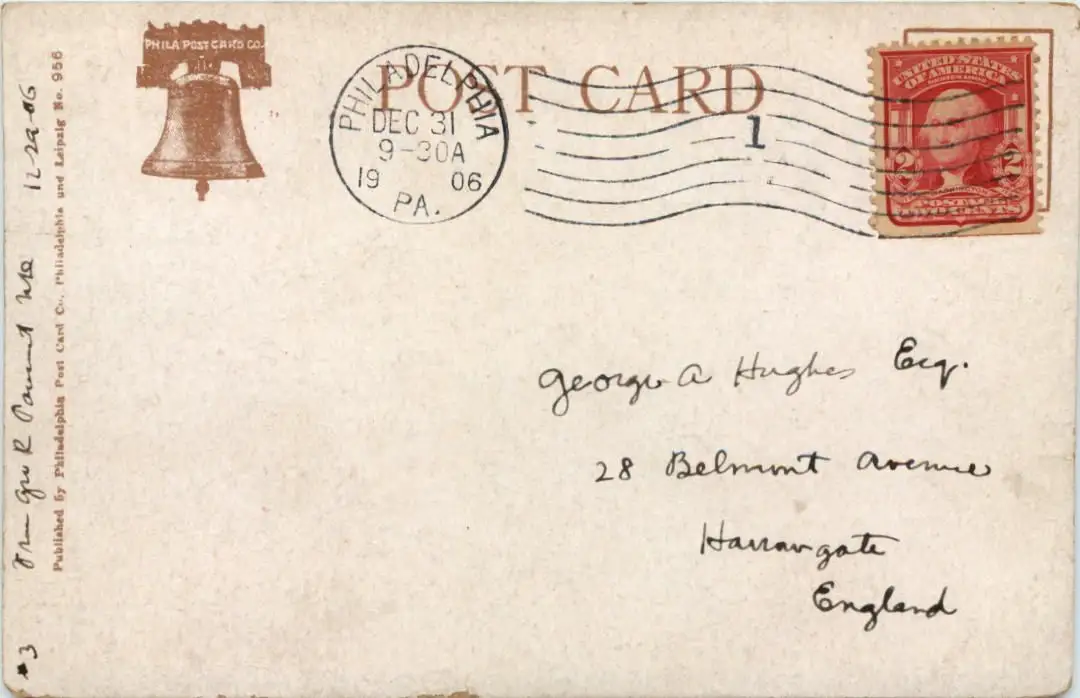 PHILA POST CARD CO.
POST CARD
PHILADELPHIA
DEC 31
9-30A
19 06
PA.
1
UNITED STATES
OF AMERICA
2 2
POSTAGE
TWO CENTS
George A Hughes Esq.
28 Belmont Avenue
Harrowgate
England
Published by Philadelphia Post Card Co., Philadelphia und Leipzig No. 956
#3 From Geo R 12-29-06